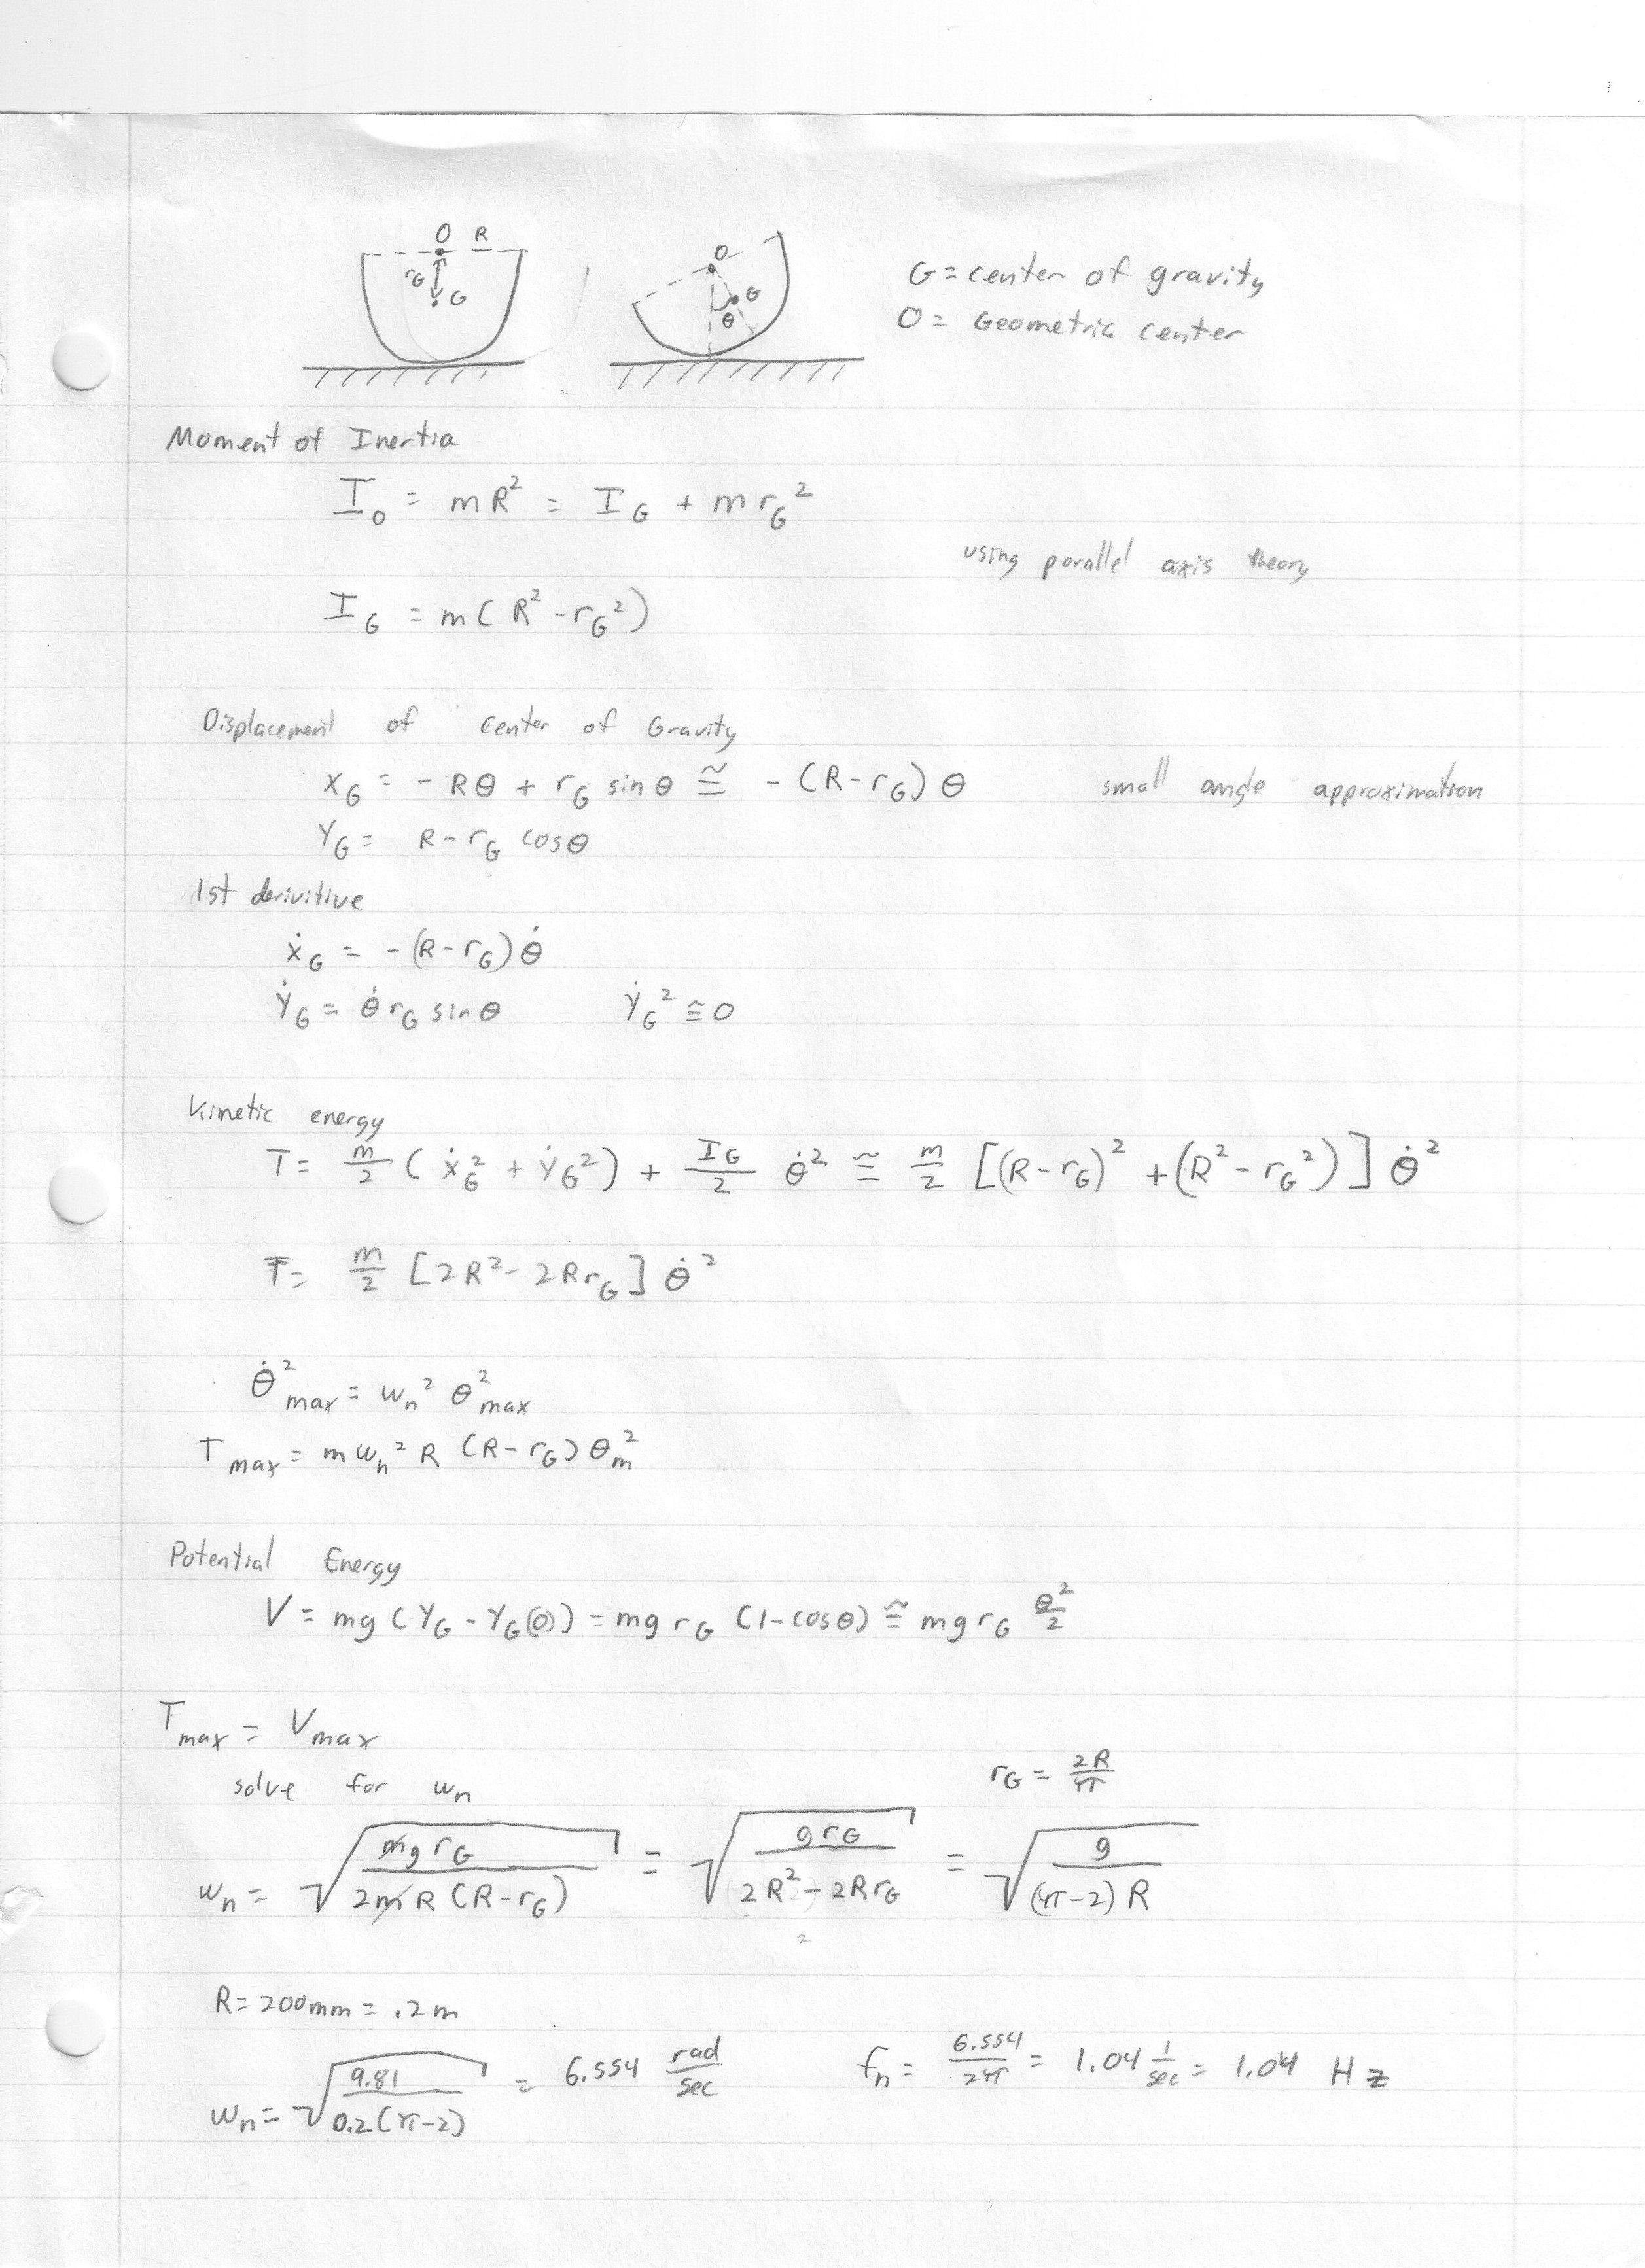 O R
rG
G
O
G
θ
G = center of gravity
O = Geometric center
Moment of Inertia
I_O = mR² = I_G + m r_G²
using parallel axis theory
I_G = m(R² - r_G²)
Displacement of center of Gravity
x_G = - Rθ + r_G sinθ ≅ - (R - r_G) θ small angle approximation
Y_G = R - r_G cosθ
1st derivitive
ẋ_G = - (R - r_G) θ̇
Ẏ_G = θ̇ r_G sinθ Ẏ_G² ≅ 0
Kinetic energy
T = m/2 (ẋ_G² + Ẏ_G²) + I_G/2 θ̇² ≅ m/2 [(R - r_G)² + (R² - r_G²)] θ̇²
T = m/2 [2R² - 2Rr_G] θ̇²
θ̇²max = wn² θ²max
Tmax = m wn² R (R - r_G) θm²
Potential Energy
V = mg (Y_G - Y_G(0)) = mg r_G (1 - cosθ) ≅ mg r_G θ²/2
Tmax = Vmax
solve for wn r_G = 2R/π
wn = √(mg r_G / 2mR (R - r_G)) = √(g r_G / 2R² - 2Rr_G) = √(g / (π-2) R)
2
R = 200mm = .2m
wn = √(9.81 / 0.2(π-2)) = 6.554 rad/sec fn = 6.554/2π = 1.04 1/sec = 1.04 Hz